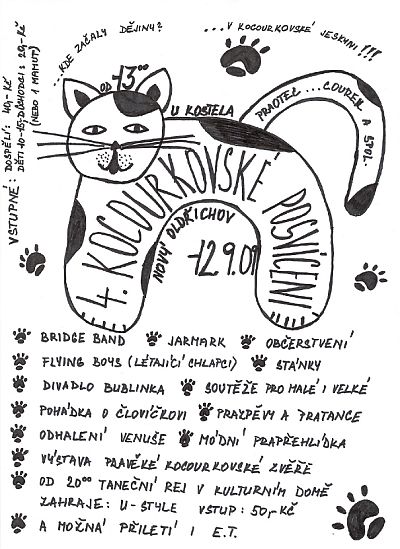 ...KDE ZAČALY DĚJINY?
...V KOCOURKOVSKÉ JESKYNI!!!
VSTUPNÉ: DOSPĚLÍ: 40,-KČ
DĚTI 10-15, DŮCHODCI: 20,-KČ
(NEBO 1 MAMUT)
OD 13⁰⁰
U KOSTELA
PRAOTEC ...LOUREK A SPOL.
4. KOCOURKOVSKÉ POSVÍCENÍ
NOVÝ OLDŘICHOV
12.9.09
BRIDGE BAND JARMARK OBČERSTVENÍ
FLYING BOYS (LÉTAJÍCÍ CHLAPCI) STÁNKY
DIVADLO BUBLINKA SOUTĚŽE PRO MALÉ I VELKÉ
POHÁDKA O ČLOVÍČKOVI PRAZPĚVY A PRATANCE
ODHALENÍ VENUŠE MÓDNÍ PRAPŘEHLÍDKA
VÝSTAVA PRAVĚKÉ KOCOURKOVSKÉ ZVĚŘE
OD 20⁰⁰ TANEČNÍ REJ V KULTURNÍM DOMĚ
ZAHRAJE: U-STYLE VSTUP: 50,-KČ
A MOŽNÁ PŘILETÍ I E.T.